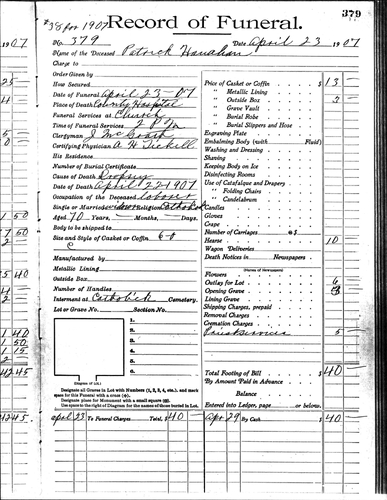 #38 for 1907
379
Record of Funeral.
1907
No. 379
Date April 23 1907
Name of the Deceased Patrick Hanahan
Charge to
Order Given by
How Secured
Date of Funeral April 23-07
Place of Death County Hospital
Funeral Services at Church
Time of Funeral Services 2 P M
Clergyman J McGrath
Certifying Physician A H Tickell
His Residence
Number of Burial Certificate
Cause of Death Dropsy
Date of Death April 22 1907
Occupation of the Deceased Laborer
Single or Married Religion Catholick
Aged 70 Years, Months, Days.
Body to be shipped to
Size and Style of Casket or Coffin 6-0
Manufactured by
Metallic Lining
Outside Box
Number of Handles
Interment at Catholick Cemetery.
Lot or Grave No. Section No.
1.
2.
3.
4.
5.
6.
(Diagram of Lot.)
Designate all Graves in Lot with Numbers (1, 2, 3, 4, etc.), and mark
space for this Funeral with a cross (+).
Designate place for Monument with a small square (□).
Use space to the right of Diagram for the names of those buried in Lot.
April 23 To Funeral Charges $40
Price of Casket or Coffin $13
" Metallic Lining
" Outside Box 3
" Grave Vault
" Burial Robe
" Burial Slippers and Hose
Engraving Plate
Embalming Body (with Fluid)
Washing and Dressing
Shaving
Keeping Body on Ice
Disinfecting Rooms
Use of Catafalque and Drapery
" Folding Chairs
" Candelabrum
Candles
Gloves
Crape
Number of Carriages @ $
Hearse 10
Wagon Deliveries
Death Notices in Newspapers
(Names of Newspapers)
Flowers
Outlay for Lot 6
Opening Grave 3
Lining Grave
Shipping Charges, prepaid
Removal Charges
Cremation Charges
Priest Services 5
Total Footing of Bill $40
By Amount Paid in Advance
Balance
Entered into Ledger, page or below.
Apr 29 By Cash $40
25
4
5
0
1 50
7 50
2
5 40
4
2
1 40
1 50
1 15
2
42 45
42 45